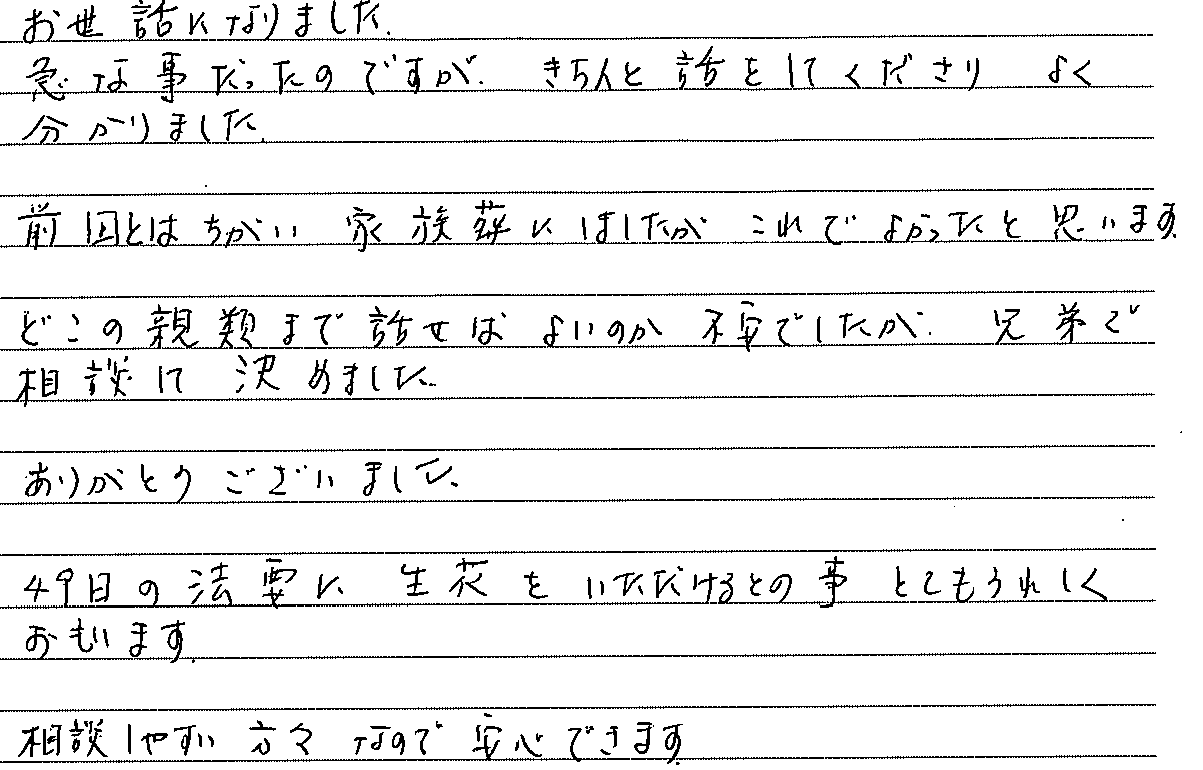 お世話になりました。
急な事だったのですが、きちんと話をしてくださり よく
分かりました。
前回とはちがい 家族葬にしましたが これでよかったと思います。
どこの親類まで話せばよいのか 不安でしたが、兄弟で
相談して 決めました。
ありがとうございました。
49日の法要に 生花を いただけるとの事 とてもうれしく
おもいます。
相談しやすい方々なので 安心できます。